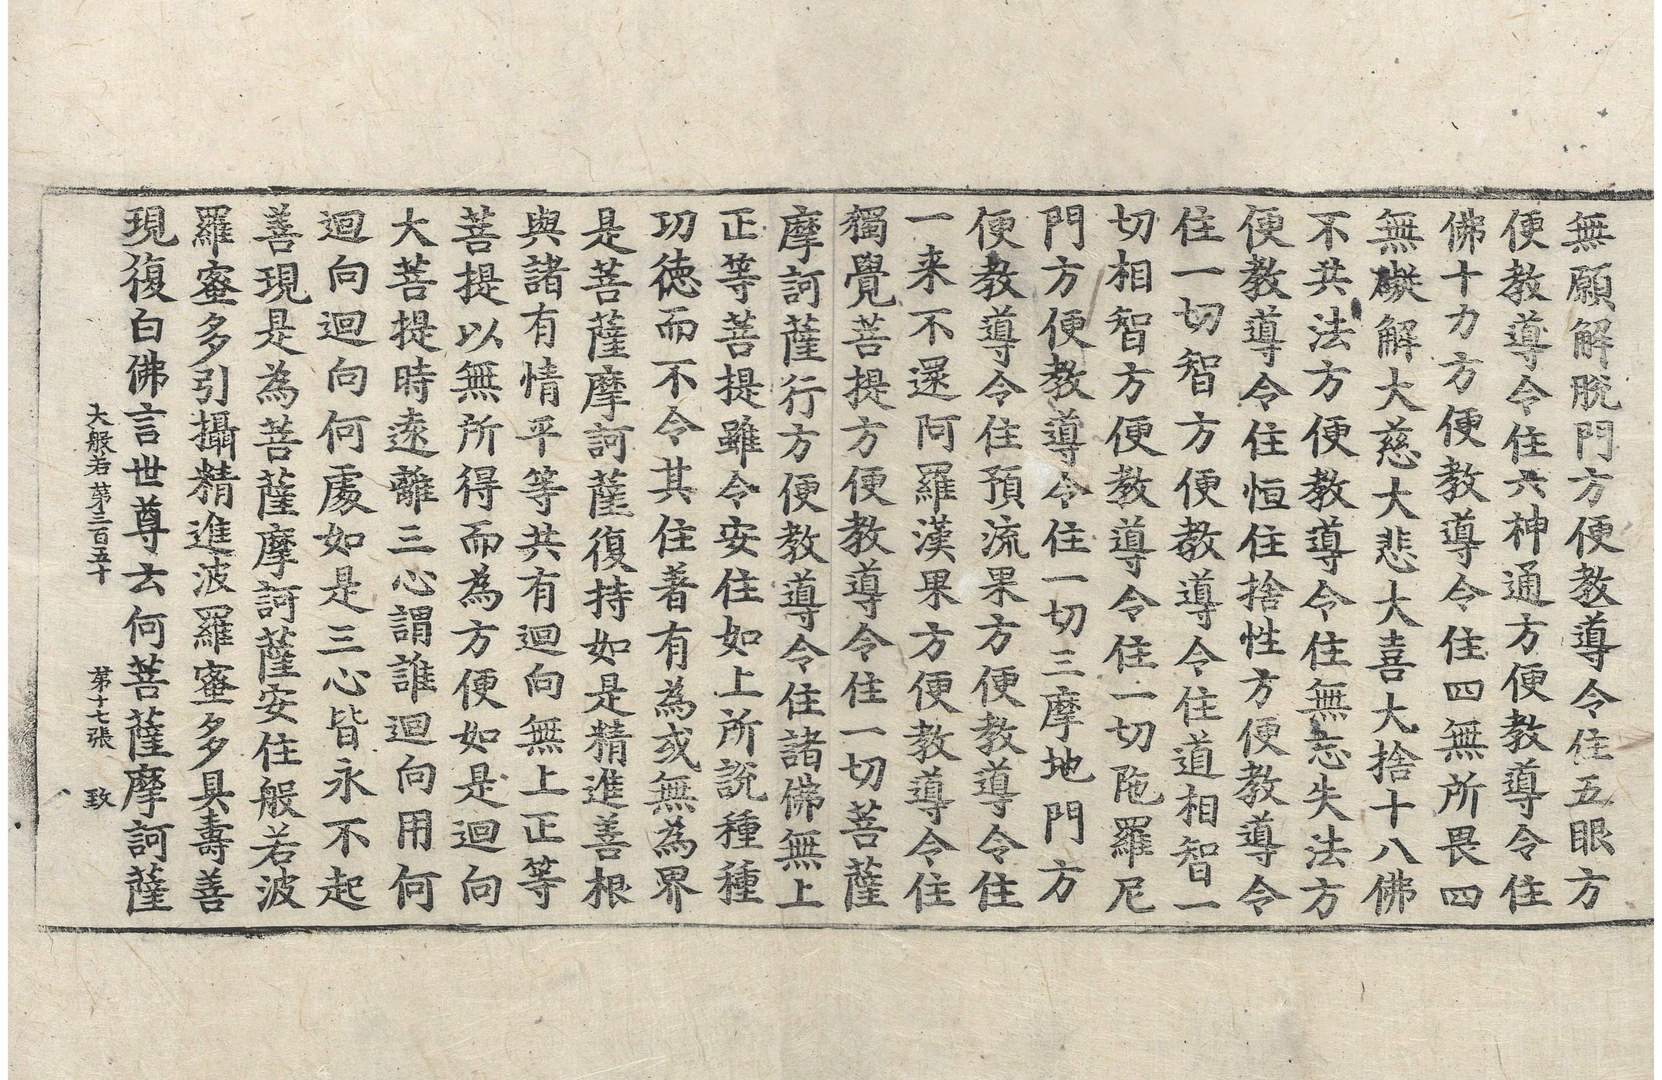 無願解脫門方便教導令住五眼方
便教導令住六神通方便教導令住
佛十力方便教導令住四無所畏四
無礙解大慈大悲大喜大捨十八佛
不共法方便教導令住無忘失法方
便教導令住恒住捨性方便教導令
住一切智方便教導令住道相智一
切相智方便教導令住一切陁羅尼
門方便教導令住一切三摩地門方
便教導令住預流果方便教導令住
一来不還阿羅漢果方便教導令住
獨覺菩提方便教導令住一切菩薩
摩訶薩行方便教導令住諸佛無上
正等菩提雖令安住如上所說種種
功徳而不令其住著有為或無為界
是菩薩摩訶薩復持如是精進善根
與諸有情平等共有迴向無上正等
菩提以無所得而為方便如是迴向
大菩提時遠離三心謂誰迴向用何
迴向迴向何處如是三心皆永不起
善現是為菩薩摩訶薩安住般若波
羅蜜多引攝精進波羅蜜多具壽善
現復白佛言世尊云何菩薩摩訶薩
大般若第三百五十 第十七張 致